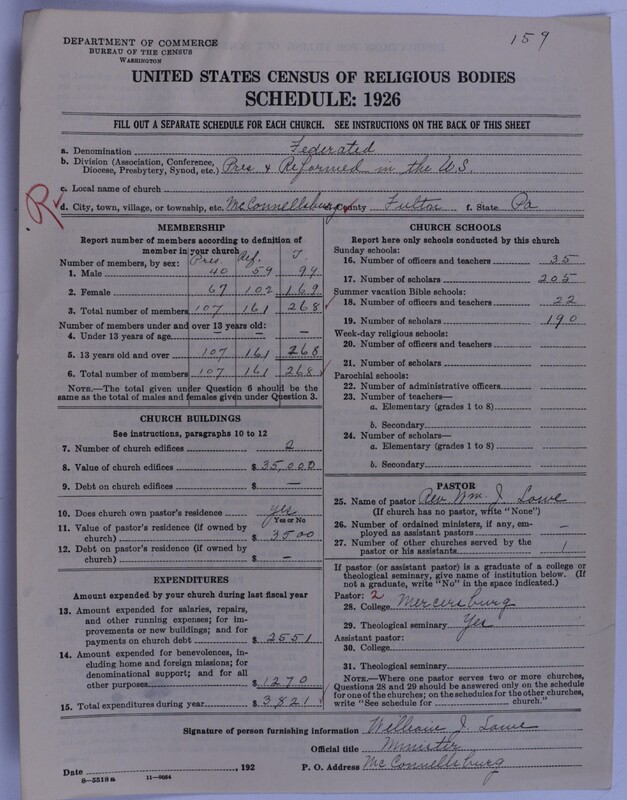 159
DEPARTMENT OF COMMERCE
BUREAU OF THE CENSUS
WASHINGTON
UNITED STATES CENSUS OF RELIGIOUS BODIES
SCHEDULE: 1926
FILL OUT A SEPARATE SCHEDULE FOR EACH CHURCH. SEE INSTRUCTIONS ON THE BACK OF THIS SHEET
a. Denomination Federated
b. Division (Association, Conference, Diocese, Presbytery, Synod, etc.) Pres & Reformed in the U.S.
c. Local name of church
R d. City, town, village, or township, etc. McConnellsburg County Fulton f. State Pa
MEMBERSHIP
Report number of members according to definition of member in your church
Number of members, by sex: Pres. Ref. T.
1. Male 40 59 99
2. Female 67 102 169
3. Total number of members 107 161 268
Number of members under and over 13 years old:
4. Under 13 years of age — — —
5. 13 years old and over 107 161 268
6. Total number of members 107 161 268
NOTE.—The total given under Question 6 should be the same as the total of males and females given under Question 3.
CHURCH BUILDINGS
See instructions, paragraphs 10 to 12
7. Number of church edifices 2
8. Value of church edifices $ 35,000
9. Debt on church edifices $ —
10. Does church own pastor's residence yes
Yes or No
11. Value of pastor's residence (if owned by church) $ 3500
12. Debt on pastor's residence (if owned by church) $ —
EXPENDITURES
Amount expended by your church during last fiscal year
13. Amount expended for salaries, repairs, and other running expenses; for improvements or new buildings; and for payments on church debt $ 2551
14. Amount expended for benevolences, including home and foreign missions; for denominational support; and for all other purposes $ 1270
15. Total expenditures during year $ 3821
CHURCH SCHOOLS
Report here only schools conducted by this church
Sunday schools:
16. Number of officers and teachers 35
17. Number of scholars 205
Summer vacation Bible schools:
18. Number of officers and teachers 22
19. Number of scholars 190
Week-day religious schools:
20. Number of officers and teachers
21. Number of scholars
Parochial schools:
22. Number of administrative officers
23. Number of teachers—
a. Elementary (grades 1 to 8)
b. Secondary
24. Number of scholars—
a. Elementary (grades 1 to 8)
b. Secondary
PASTOR
25. Name of pastor Rev. Wm. J. Lowe
(If church has no pastor, write "None")
26. Number of ordained ministers, if any, employed as assistant pastors —
27. Number of other churches served by the pastor or his assistants 1
If pastor (or assistant pastor) is a graduate of a college or theological seminary, give name of institution below. (If not a graduate, write "No" in the space indicated.)
Pastor: 2
28. College Mercersburg
29. Theological seminary Yes
Assistant pastor:
30. College
31. Theological seminary
NOTE.—Where one pastor serves two or more churches, Questions 28 and 29 should be answered only on the schedule for one of the churches; on the schedules for the other churches, write "See schedule for church."
Signature of person furnishing information William J. Lowe
Official title Minister
Date , 192 P. O. Address McConnellsburg
8—5518a 11—9064